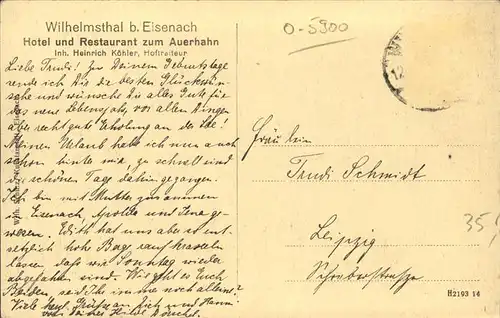 Wilhelmsthal b. Eisenach
Hotel und Restaurant zum Auerhahn
Inh. Heinrich Köhler, Hoftraiteur
0-5900
Liebe Trudi! Zu Deinem Geburtstage
sende ich Dir die besten Glückwün-
sche und wünsche Dir alles Gute für
das neue Lebensjahr, vor allen Dingen
aber recht gute Erholung an der See!
Meinen Urlaub hab ich nun auch
schon hinter mir, zu schnell sind
die schönen Tage dahin gegangen.
Ich bin mit Mutter zusammen
in Eisenach, Apolda und Jena ge-
wesen. Edith hat uns aber ist ent-
setzlich hohe Berge raufkraxeln
lassen, daß wir Sonntag wieder
abgefahren sind. Wie geht es Euch
Beiden, seid Ihr immer noch alleine?
Viele herzl. Grüße an Dich und Hanni
von Deiner
Fräulein
Trudi Schmidt
Leipzig
Schreberstraße
35
H2193 14